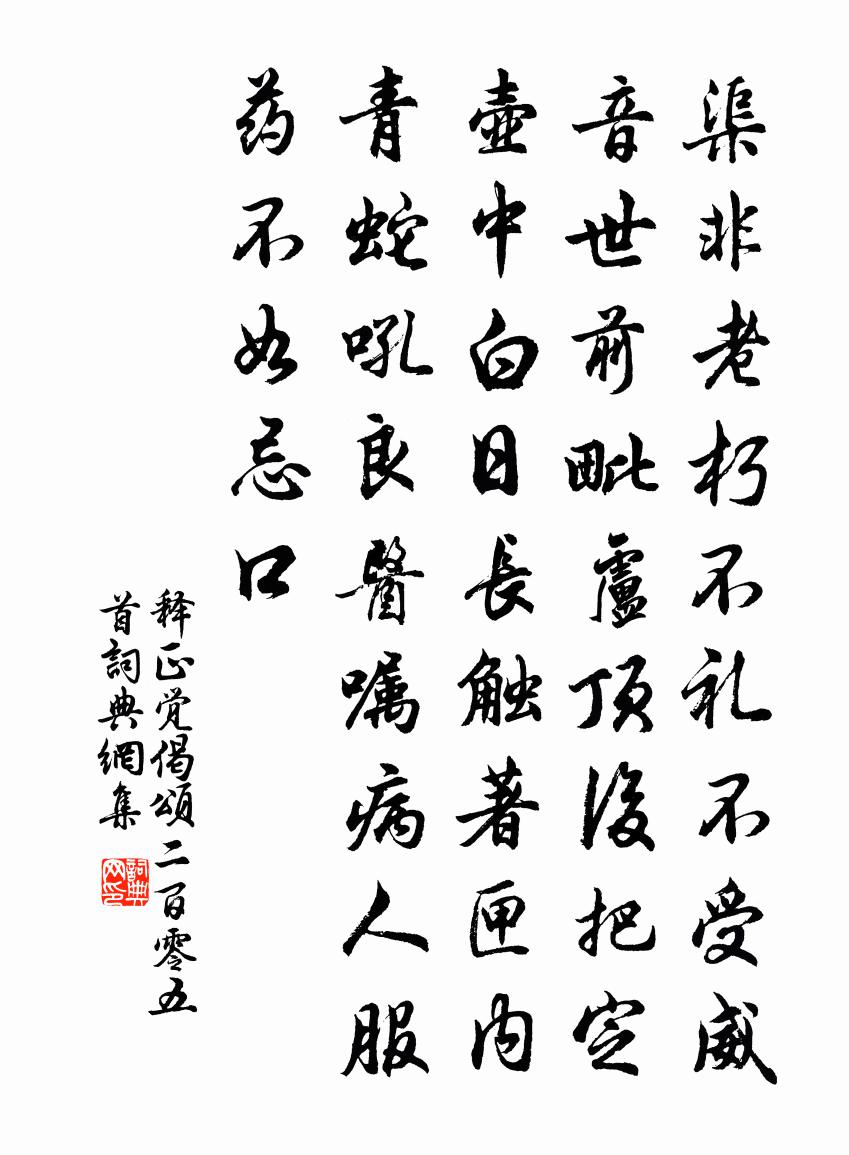 渠非老朽不礼不受威
音世前毗盧顶後把定
壺中白日長触著匣内
青蛇吼良醫嘱病人服
药不如忌口
释正觉偈頌二百零五
首詞典網集
詞典
网印